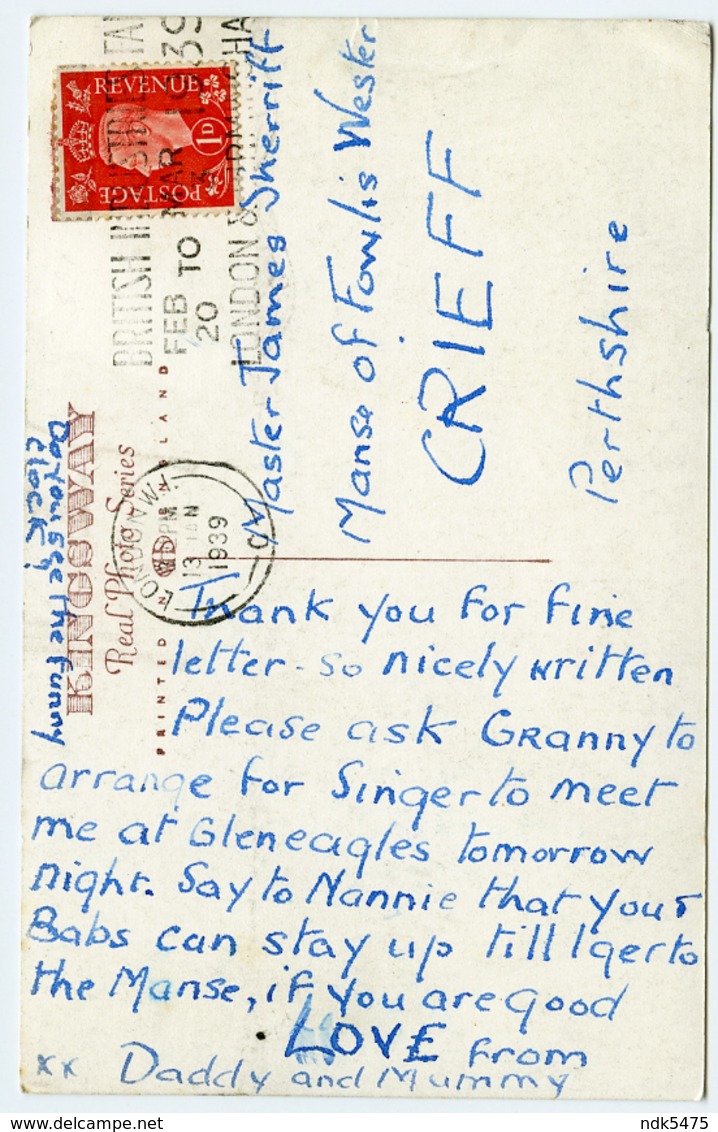 REVENUE
1D
POSTAGE
BRITISH INDUSTRIES FAIR
FEB TO MAR 1939
20 3
LONDON &
LONDON W.1.
PM
13 JAN
1939
KINGSWAY
Real Photo Series
PRINTED IN ENGLAND
Do you see the funny
clock?
Master James Sherriff
Manse of Fowlis Wester
CRIEFF
Perthshire
Thank you for fine
letter - so nicely written
Please ask Granny to
arrange for Singer to meet
me at Gleneagles tomorrow
night. Say to Nannie that you &
Babs can stay up till I get to
the Manse, if you are good
LOVE from
xx Daddy and Mummy
ndk5475